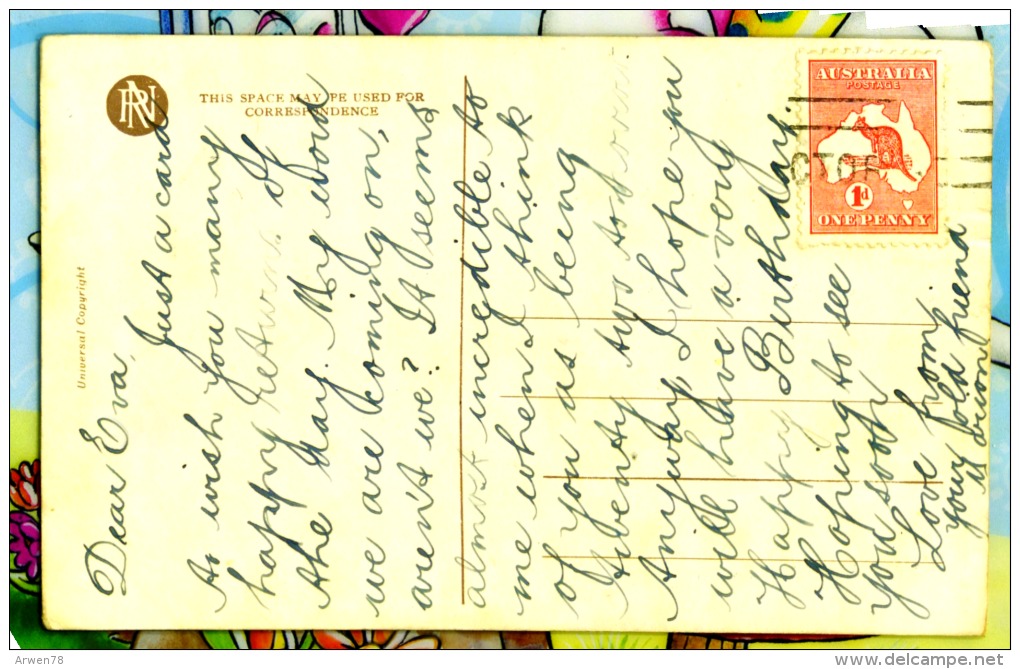 RN
THIS SPACE MAY BE USED FOR
CORRESPONDENCE
Universal Copyright
AUSTRALIA
POSTAGE
1d
ONE PENNY
Dear Eva,
Just a card
to wish you many
happy returns of
the day. My word
we are coming on,
aren't we? It seems
almost incredible to
me when I think
of you as being
twenty two tod
Anyway I hope you
will have a very
Happy Birthday.
Hoping to see
you soon
Love from
your old friend
Arwen78
http://www.delcampe.net